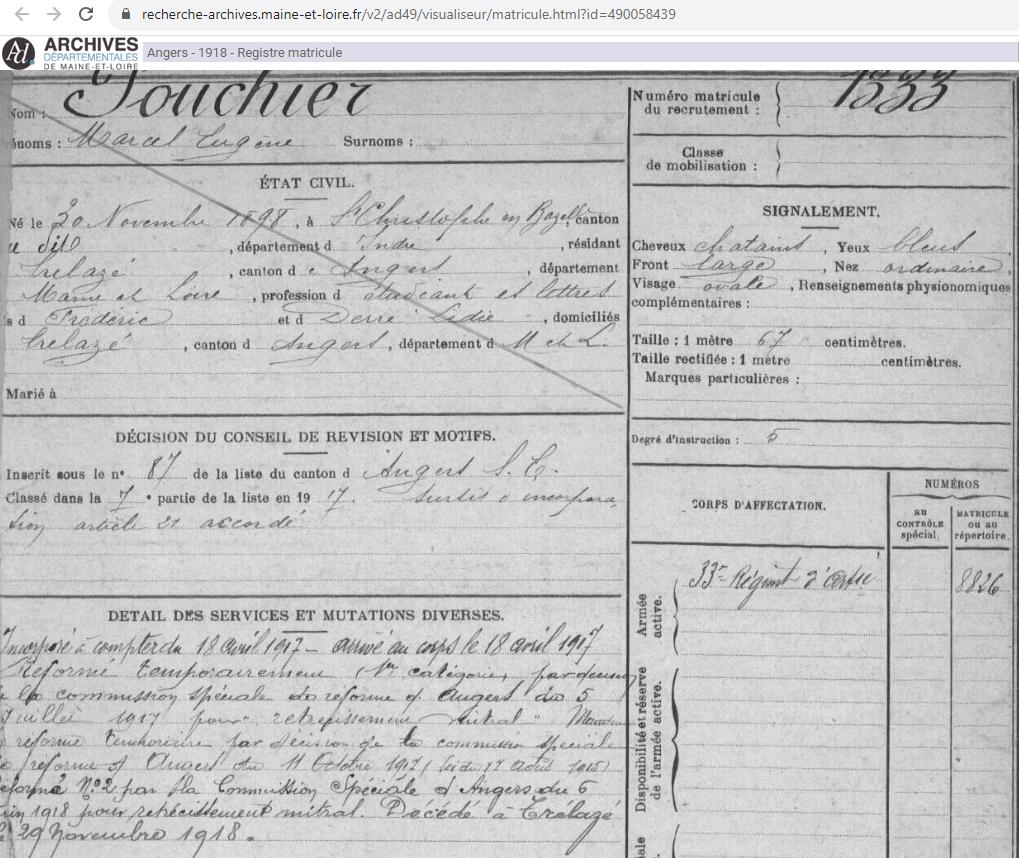 recherche-archives.maine-et-loire.fr/v2/ad49/visualiseur/matricule.html?id=490058439
Ad ARCHIVES
DÉPARTEMENTALES
DE MAINE-ET-LOIRE
Angers - 1918 - Registre matricule
Nom : Fouchier
énoms : Marcel Eugène Surnoms :
ÉTAT CIVIL.
Né le 30 Novembre 1898, à St Christophe en Bazelle, canton
u dit, département d Indre, résidant
Trélazé, canton d e Angers, département
Maine et Loire, profession d étudiant et lettres
s d Frédéric et d Derré Lidie, domiciliés
Trélazé, canton d Angers, département d M et L.
Marié à
DÉCISION DU CONSEIL DE REVISION ET MOTIFS.
Inscrit sous le n° 87 de la liste du canton d Angers S. E.
Classé dans la 7e partie de la liste en 19 17. Sursis d'incorpora-
tion article 21 accordé
DETAIL DES SERVICES ET MUTATIONS DIVERSES.
Incorporé à compter du 18 avril 1917 – arrivé au corps le 18 avril 1917
Réformé temporairement (1re catégorie) par décision
de la commission spéciale de réforme d'Angers du 5
Juillet 1917 pour "rétrécissement mitral" Maintenu
réforme temporaire par décision de la commission spéciale
de réforme d'Angers du 11 Octobre 1917 (loi du 17 Août 1915)
éformé N°2 par la Commission Spéciale d'Angers du 6
uin 1918 pour rétrécissement mitral. Décédé à Trélazé
le 29 Novembre 1918.
Numéro matricule
du recrutement : 1333
Classe
de mobilisation :
SIGNALEMENT.
Cheveux chatains, Yeux bleus
Front large, Nez ordinaire,
Visage ovale, Renseignements physionomiques
complémentaires :
Taille : 1 mètre 67 centimètres.
Taille rectifiée : 1 mètre centimètres.
Marques particulières :
Degré d'instruction : 5
CORPS D'AFFECTATION.
NUMÉROS
au
CONTRÔLE
spécial.
MATRICULE
ou au
répertoire.
Armée
active.
33e Régiment d'Artie
8826
Disponibilité et réserve
de l'armée active.